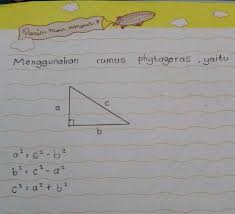 Menggunakan rumus phytagoras, yaitu
a
c
b
a² = c² - b²
b² = c² - a²
c² = a² + b²